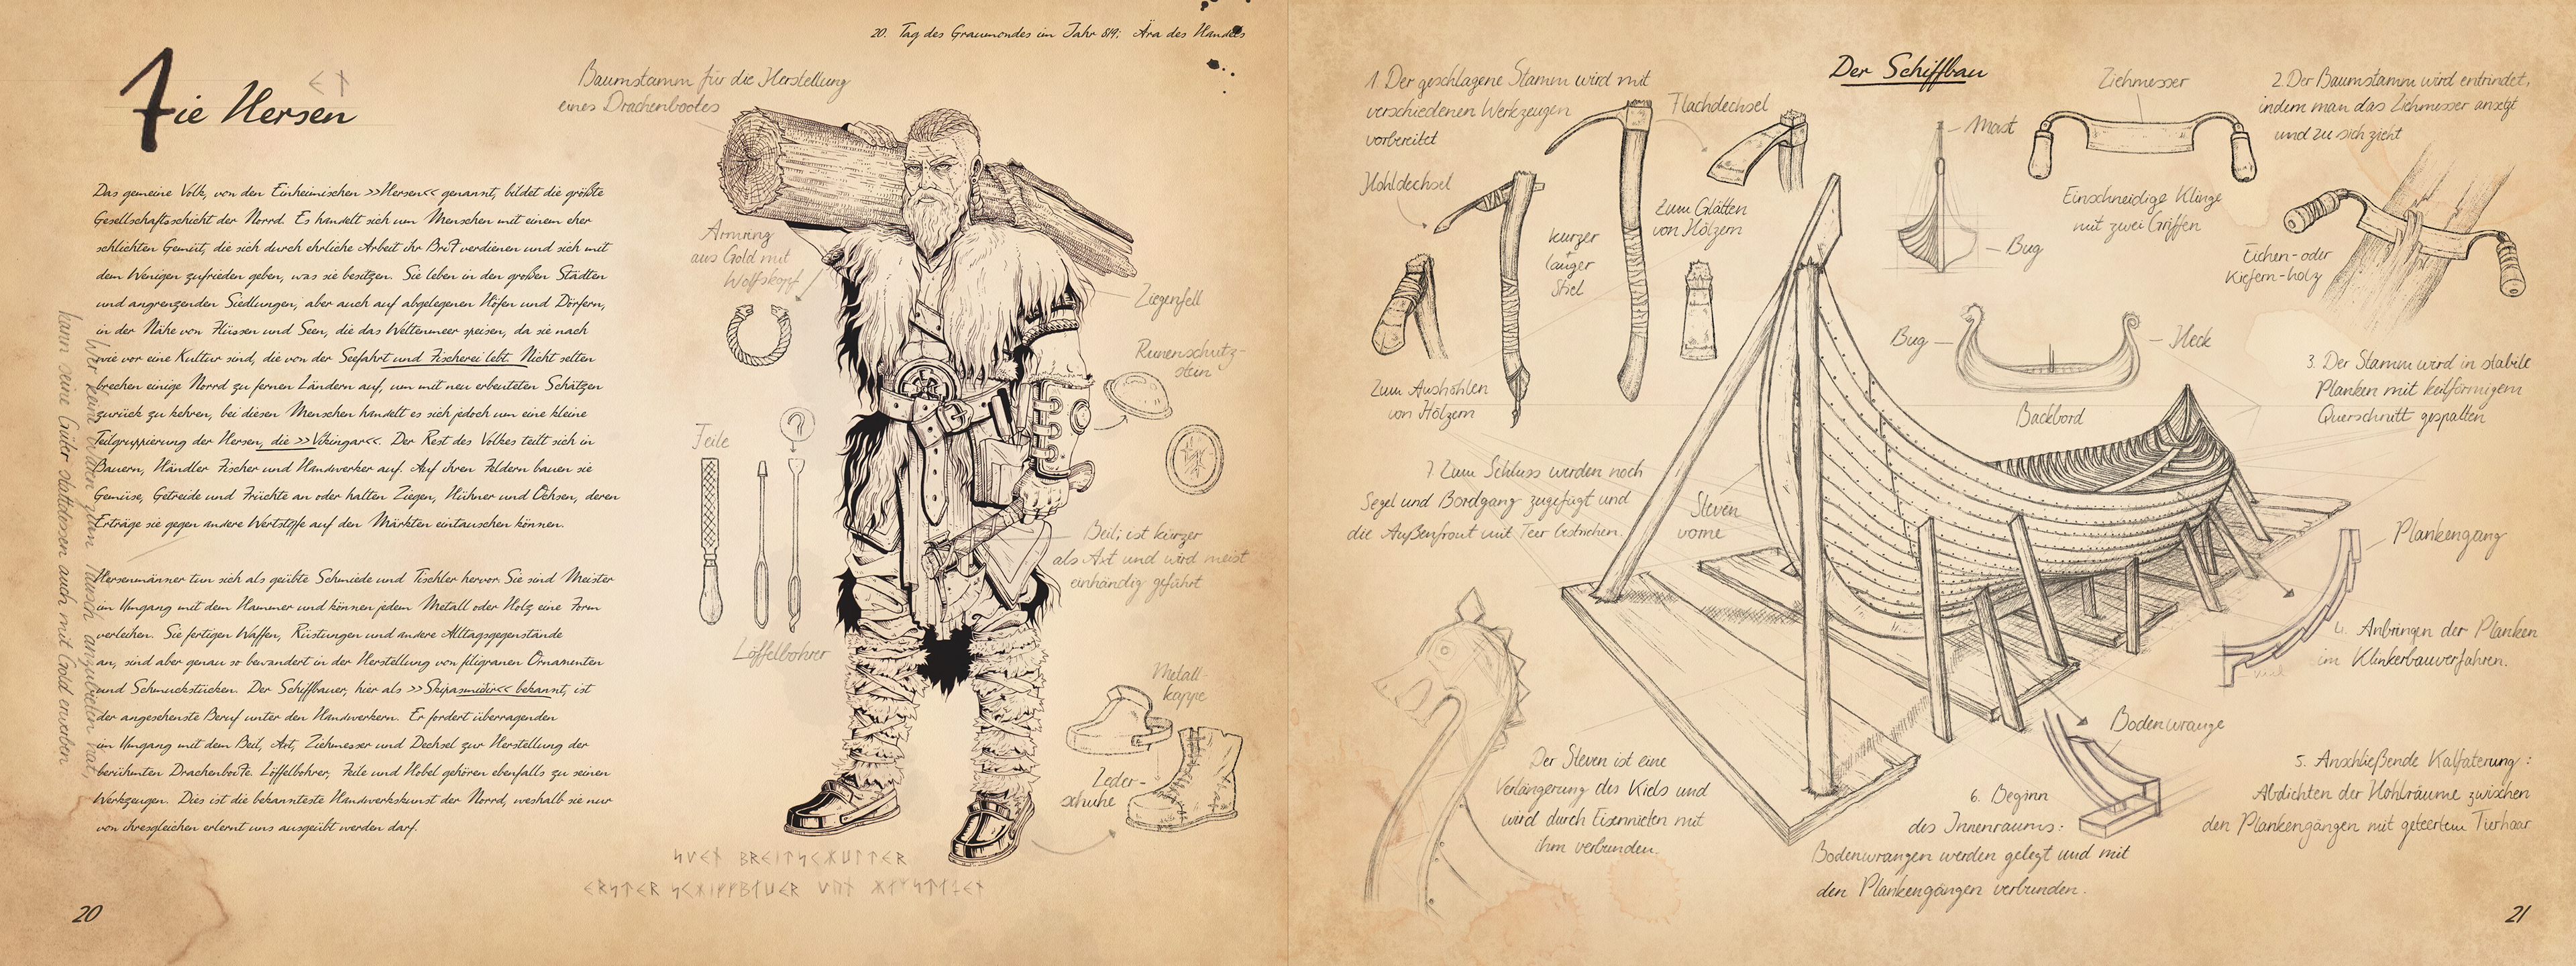 20. Tag des Graumondes im Jahr 819; Ära des Handels
Die Hersen
Das gemeine Volk, von den Einheimischen >>Hersen<< genannt, bildet die größte
Gesellschaftsschicht der Norrd. Es handelt sich um Menschen mit einem eher
schlichten Gemüt, die sich durch ehrliche Arbeit ihr Brot verdienen und sich mit
dem Wenigen zufrieden geben, was sie besitzen. Sie leben in den großen Städten
und angrenzenden Siedlungen, aber auch auf abgelegenen Höfen und Dörfern,
in der Nähe von Flüssen und Seen, die das Weltenmeer speisen, da sie nach
wie vor eine Kultur sind, die von der Seefahrt und Fischerei lebt. Nicht selten
brechen einige Norrd zu fernen Ländern auf, um mit neu erbeuteten Schätzen
zurück zu kehren, bei diesen Menschen handelt es sich jedoch um eine kleine
Teilgruppierung der Hersen, die >>Vikingar<<. Der Rest des Volkes teilt sich in
Bauern, Händler Fischer und Handwerker auf. Auf ihren Feldern bauen sie
Gemüse, Getreide und Früchte an oder halten Ziegen, Hühner und Ochsen, deren
Erträge sie gegen andere Wertstoffe auf den Märkten eintauschen können.
Hersenmänner tun sich als geübte Schmiede und Tischler hervor. Sie sind Meister
im Umgang mit dem Hammer und können jedem Metall oder Holz eine Form
verleihen. Sie fertigen Waffen, Rüstungen und andere Alltagsgegenstände
an, sind aber genau so bewandert in der Herstellung von filigranen Ornamenten
und Schmuckstücken. Der Schiffbauer, hier als >>Skipasmidir<< bekannt, ist
der angesehenste Beruf unter den Handwerkern. Er fordert überragenden
im Umgang mit dem Beil, Axt, Ziehmesser und Dechsel zur Herstellung der
berühmten Drachenboote. Löffelbohrer, Feile und Hobel gehören ebenfalls zu seinen
Werkzeugen. Dies ist die bekannteste Handwerkskunst der Norrd, weshalb sie nur
von ihresgleichen erlernt uns ausgeübt werden darf.
Wer keine Waren zum Tausch anzubieten hat,
kann seine Güter stattdessen auch mit Gold erwerben
20
Baumstamm für die Herstellung
eines Drachenbootes
Armring
aus Gold mit
Wolfskopf
Ziegenfell
Runenschutz-
stein
Feile
Löffelbohrer
Beil; ist kürzer
als Axt und wird meist
einhändig geführt
Metall-
kappe
Leder-
schuhe
Der Schiffbau
1. Der geschlagene Stamm wird mit
verschiedenen Werkzeugen
vorbereitet
Flachdechsel
Hohldechsel
Zum Glätten
von Hölzern
kurzer
+
langer
Stiel
Zum Aushöhlen
von Hölzern
Mast
Bug
Ziehmesser
2. Der Baumstamm wird entrindet,
indem man das Ziehmesser ansetzt
und zu sich zieht
Einschneidige Klinge
mit zwei Griffen
Eichen- oder
Kiefern-holz
Bug
Heck
Backbord
3. Der Stamm wird in stabile
Planken mit keilförmigem
Querschnitt gespalten
7. Zum Schluss werden noch
Segel und Bordgang zugefügt und
die Außenfront mit Teer bestrichen.
Steven
vorne
Plankengang
4. Anbringen der Planken
im Klinkerbauverfahren.
Bodenwrange
5. Anschließende Kalfaterung:
Abdichten der Hohlräume zwischen
den Plankengängen mit geteertem Tierhaar
6. Beginn
des Innenraums:
Bodenwrangen werden gelegt und mit
den Plankengängen verbunden.
Der Steven ist eine
Verlängerung des Kiels und
wird durch Eisennieten mit
ihm verbunden.
21